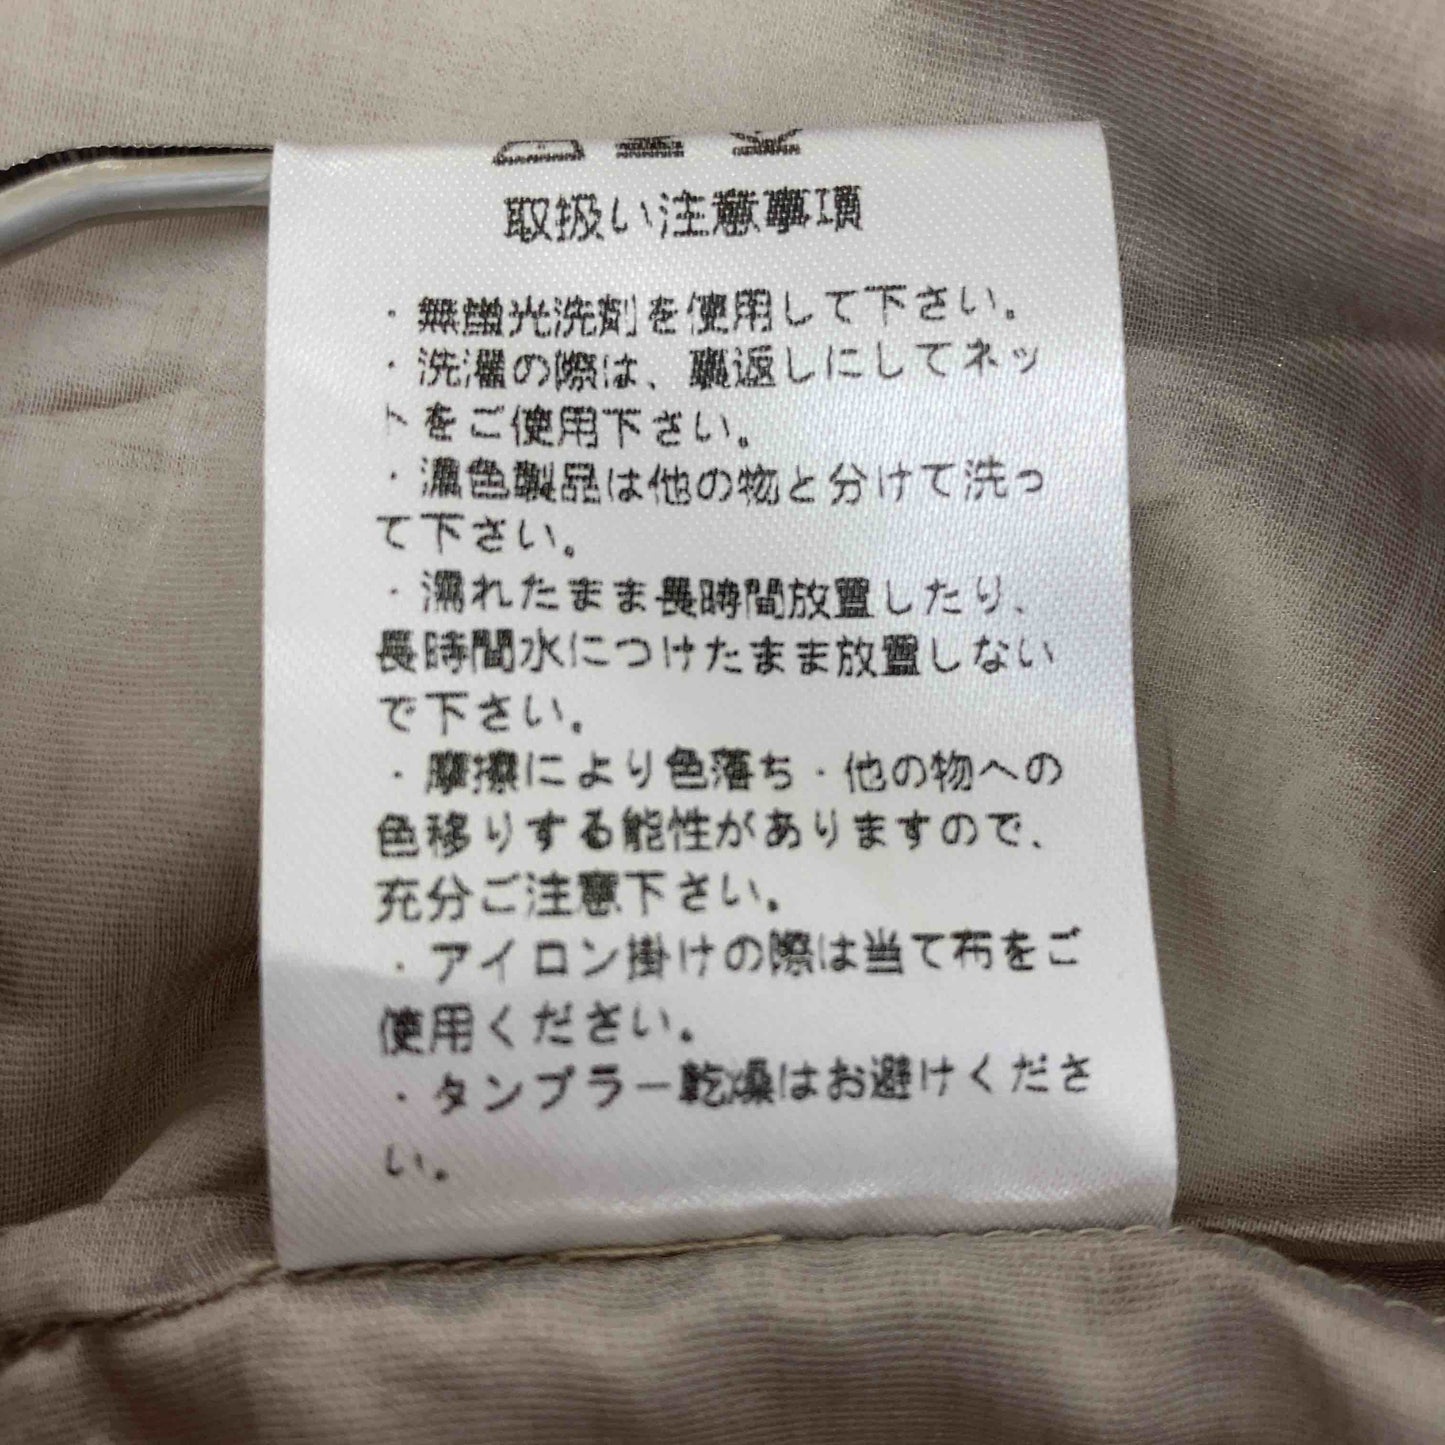 取扱い注意事項
・無蛍光洗剤を使用して下さい。
・洗濯の際は、裏返しにしてネッ
トをご使用下さい。
・濃色製品は他の物と分けて洗っ
て下さい。
・濡れたまま長時間放置したり、
長時間水につけたまま放置しない
で下さい。
・摩擦により色落ち・他の物への
色移りする能性がありますので、
充分ご注意下さい。
・アイロン掛けの際は当て布をご
使用ください。
・タンブラー乾燥はお避けくださ
い。